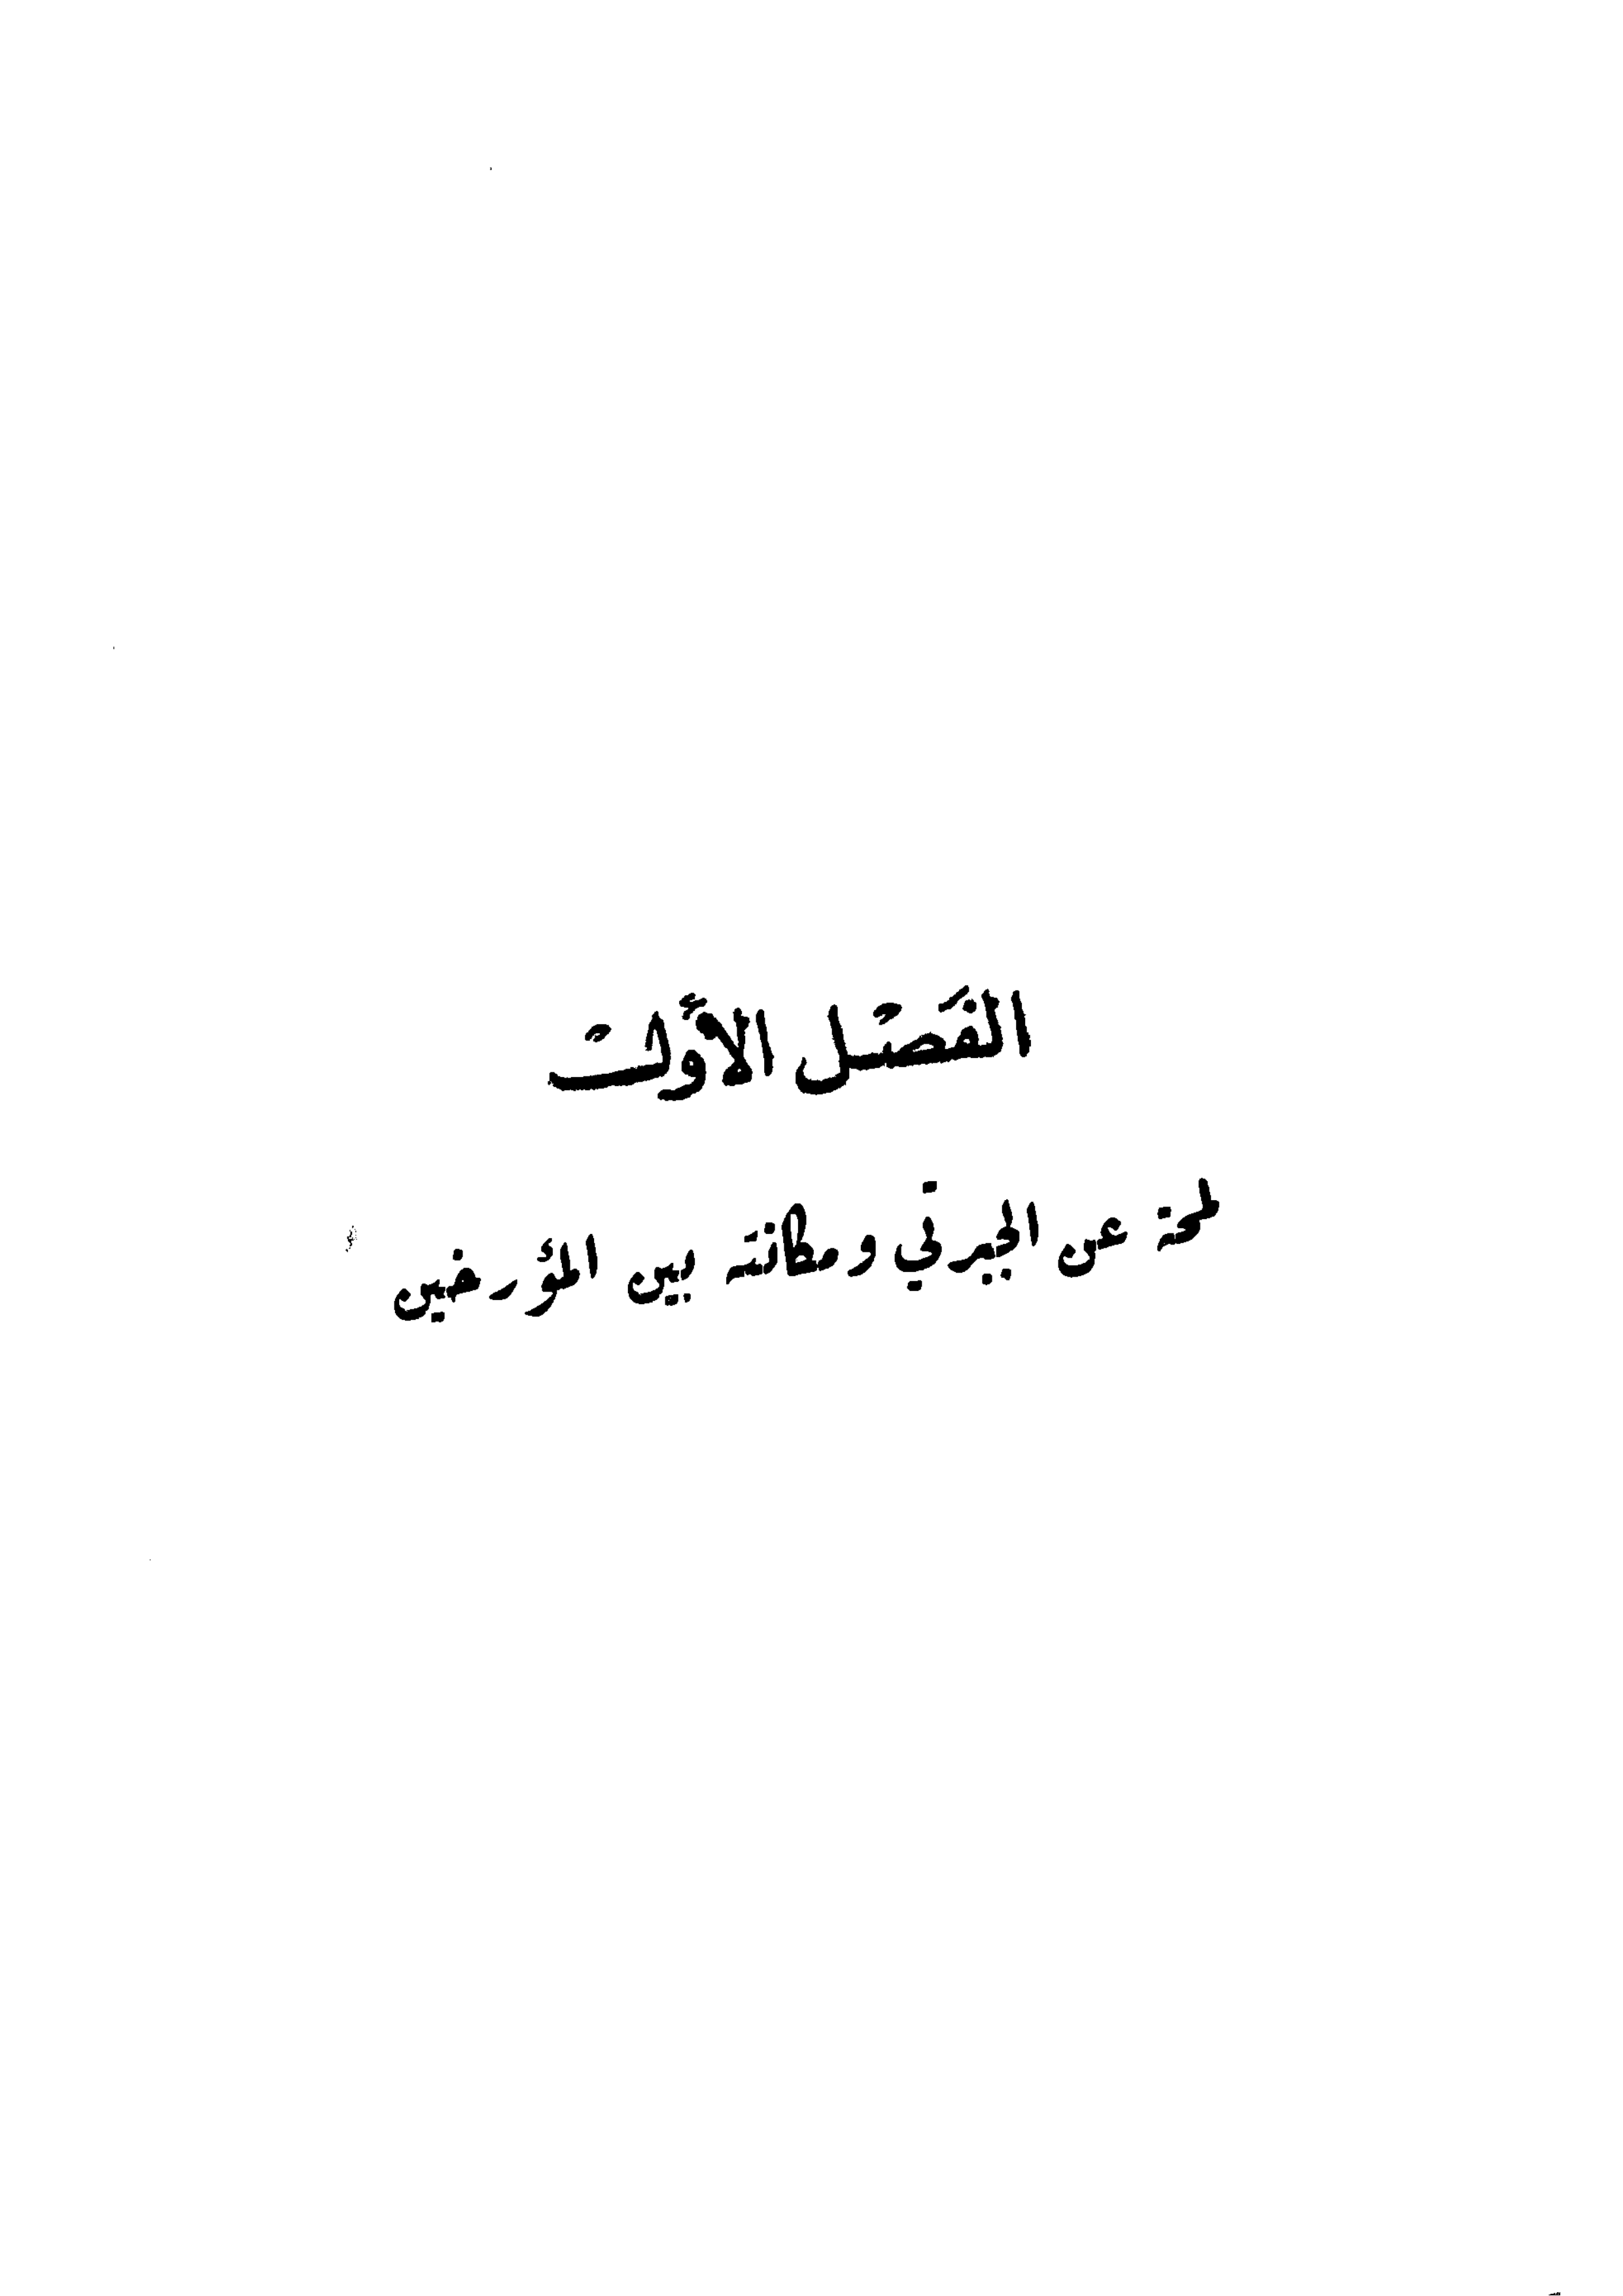 الفَصْل الأوّل
لمحة عن الجبرتي ومكانته بين المؤرخين